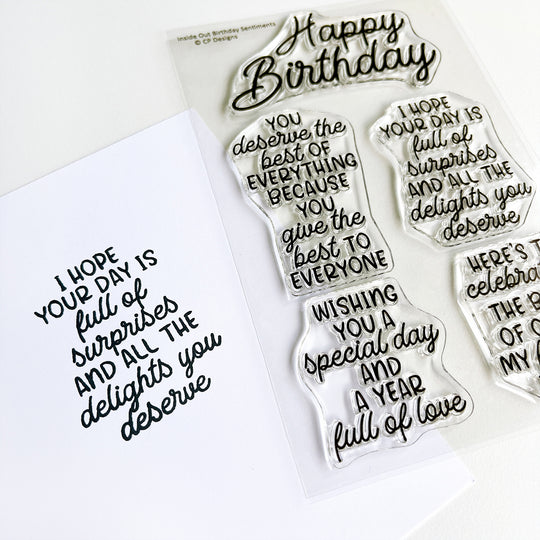 Inside Out Birthday Sentiments
© CP Designs
Happy
Birthday
YOU
deserve the
best OF
EVERYTHING
BECAUSE
YOU
give the
best TO
EVERYONE
I HOPE
YOUR DAY IS
full of
surprises
AND ALL THE
delights you
deserve
WISHING
YOU A
special day
AND
A YEAR
full of love
HERE'S
THE
OF
MY
I HOPE
YOUR DAY IS
full of
surprises
AND ALL THE
delights you
deserve